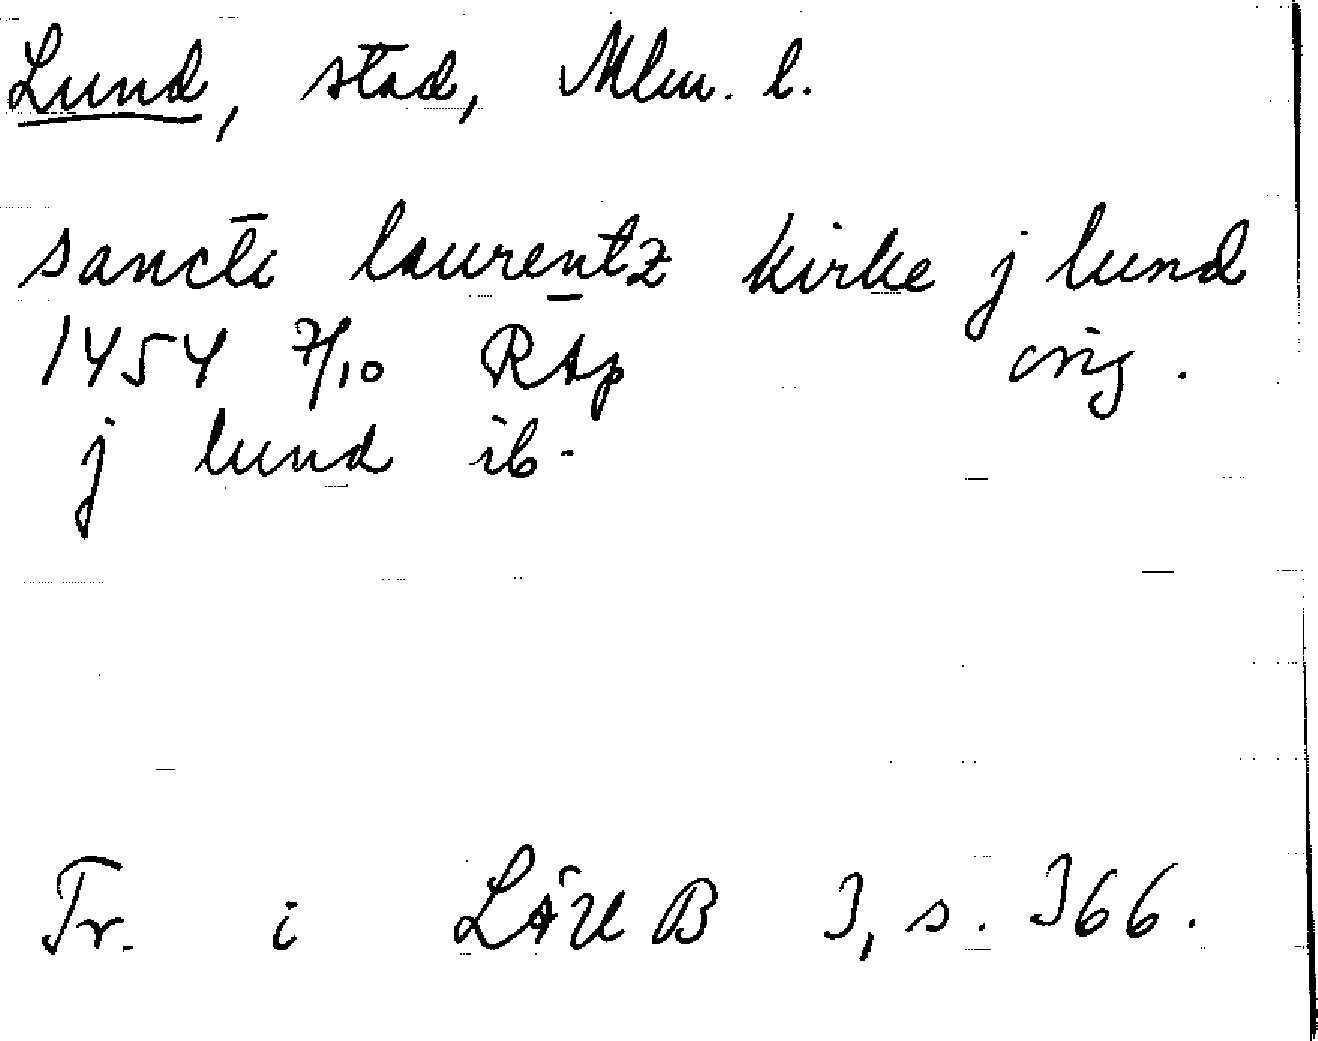 Lund, stad, Mlm. l.
sancti laurentz kirke j lund
1454 7/10 RAp orig.
j lund ib.
Tr. i LÄUB 3, s. 366.